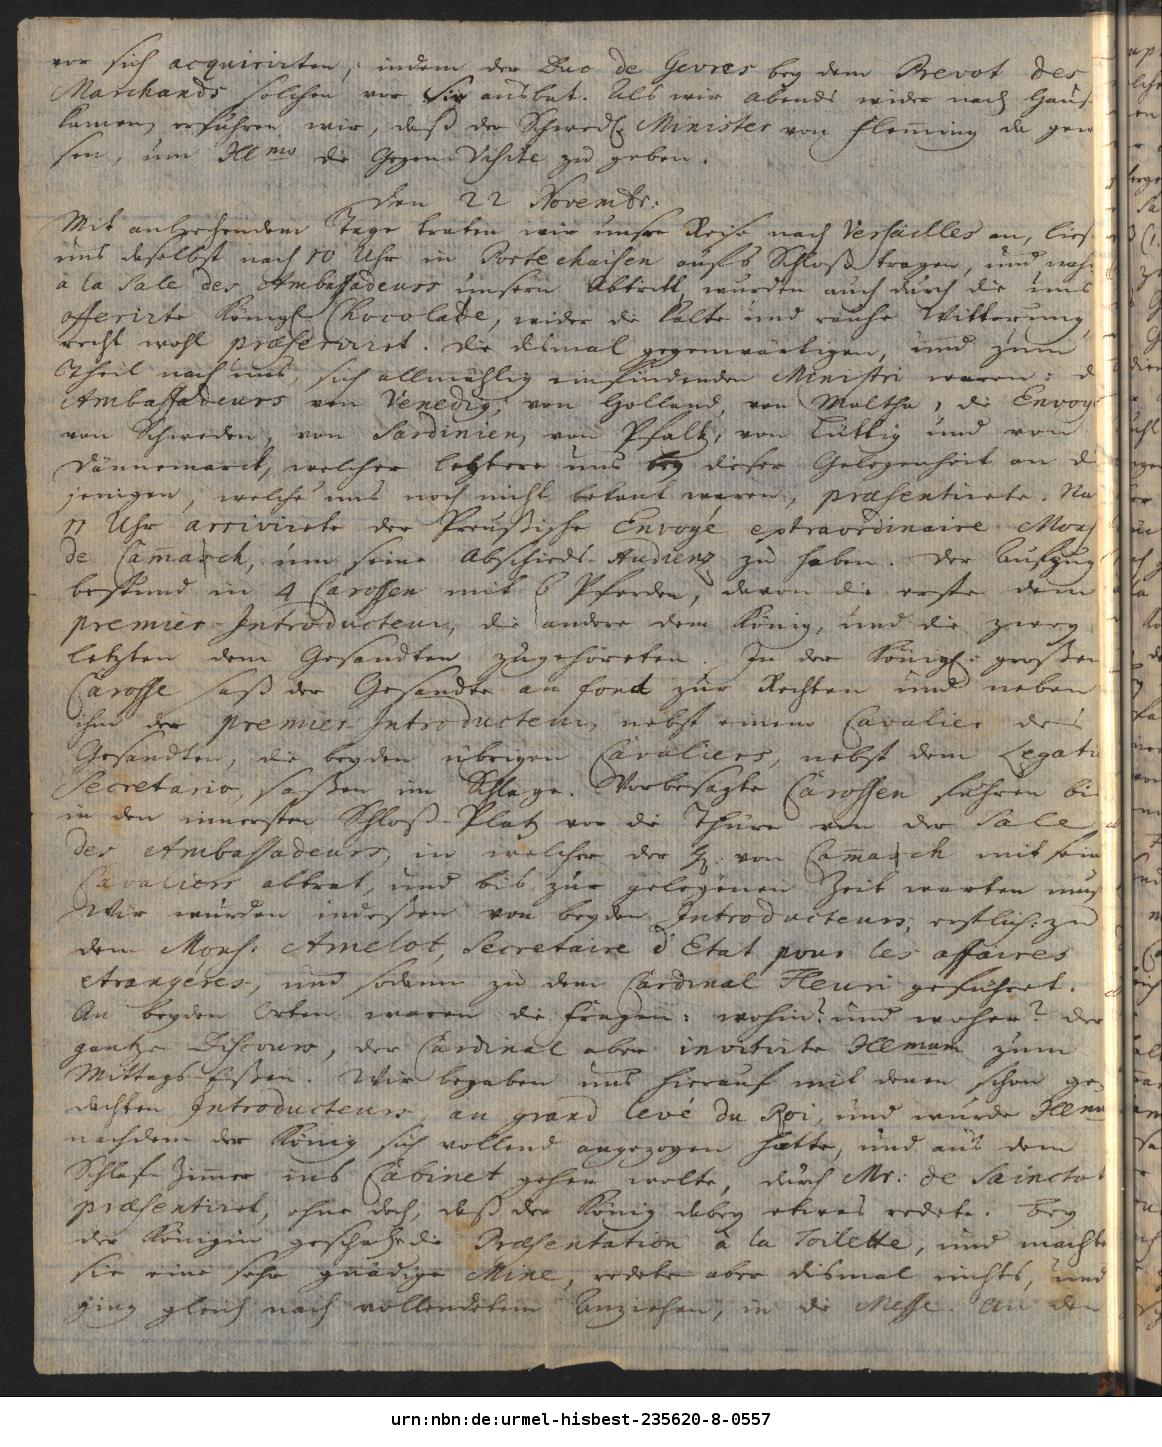 vor sich acquirirten, indem der Duc de Gevres bey dem Prevot des
Marchands solchen vor sie ausbat. Als wir abends wider nach Haus
kamen, erfuhren wir, daß der Schwed: Minister von Fleming da gew
sen, um Illmo die Gegen Visite zu geben.
den 22 Novembr:
Mit anbrechendem Tage traten wir unsre Reise nach Versailles an, lies
uns daselbst nach 10 Uhr in Porte chaisen aufs Schloß tragen, und nah
à la Sale des Ambassadeurs unsern Abtritt, wurden auch durch die uns
offerirte Königl Chocolade, wider die Kälte und rauhe Witterung,
recht wohl præserviret. Die dismal gegenwärtigen, und zum
Theil nach uns, sich allmählig einfindenden Ministri waren: d
Ambassadeurs von Venedig, von Holland, von Maltha, die Envoyé
von Schweden, von Sardinien, von Pfalz, von Lüttig und von
Dännemarck, welcher letztere uns bey dieser Gelegenheit an di
jenigen, welche uns noch nicht bekant waren, præsentirete. Na
11 Uhr arrivirete der Preußische Envoyé extraordinaire Mons
de Camasch, um seine Abschieds-Audienz zu haben. Der Aufzug
bestund in 4 Carossen mit 6 Pferden, davon die erste dem
premier Introducteur, die andere dem König, und die zwey
letzten dem Gesandten zugehöreten. In der Königl: großen
Carosse saß der Gesandte au fond zur Rechten und neben
ihm der premier Introducteur, nebst einem Cavalier des
Gesandten, die beyden übrigen Cavaliers, nebst dem Legati
Secretario, saßen im Schlage. Vorbesagte Carossen fuhren bi
in den innersten Schloß-Platz vor die Thüre von der Sale
des Ambassadeurs, in welcher der H: von Camasch mit sein
Cavaliers abtrat, und bis zur gelegenen Zeit warten mus
Wir wurden indeßen von beyden Introducteurs, erstlich: zu
dem Mons: Amelot, Secretaire d'Etat pour les affaires
etrangéres, und sodann zu dem Cardinal Fleuri geführet.
An beyden Orten waren die Fragen: wohin? und woher? der
gantze Discours, der Cardinal aber invitirte Illmum zum
Mittags-Eßen. Wir begaben uns hierauf mit denen schon ge
dachten Introducteurs au grand levé du Roi, und wurde Illmu
nachdem der König sich vollend angezogen hatte, und aus dem
Schlaf-Zimmer ins Cabinet gehen wolte, durch Mr: de Sainctot
præsentiret, ohne doch, daß der König dabey etwas redete. Bey
der Königin geschahe die Præsentation à la Toilette, und machte
sie eine sehr gnädige Mine, redete aber dismal nichts, und
ging gleich nach vollendetem Anziehen, in die Messe. An den
urn:nbn:de:urmel-hisbest-235620-8-0557